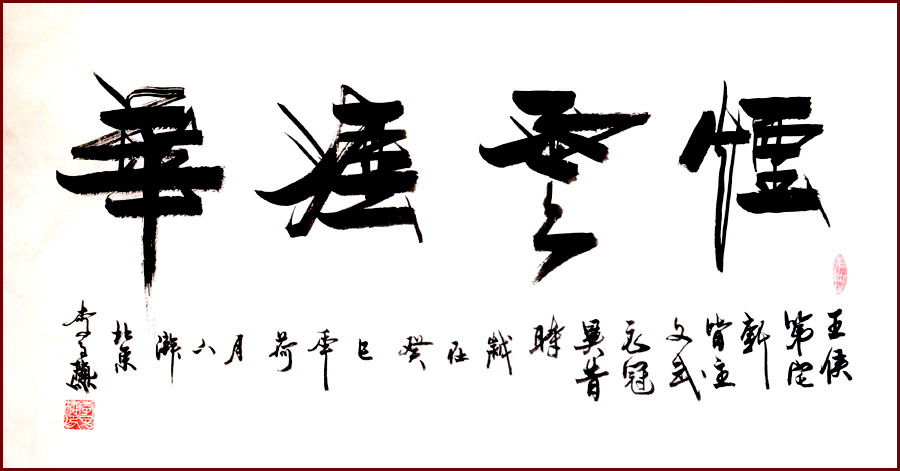 煙雲華
王侯
第宅
新
皆主
文武
衣冠
異昔
時
歲
在
癸
巳
年
荷
月
北京
李